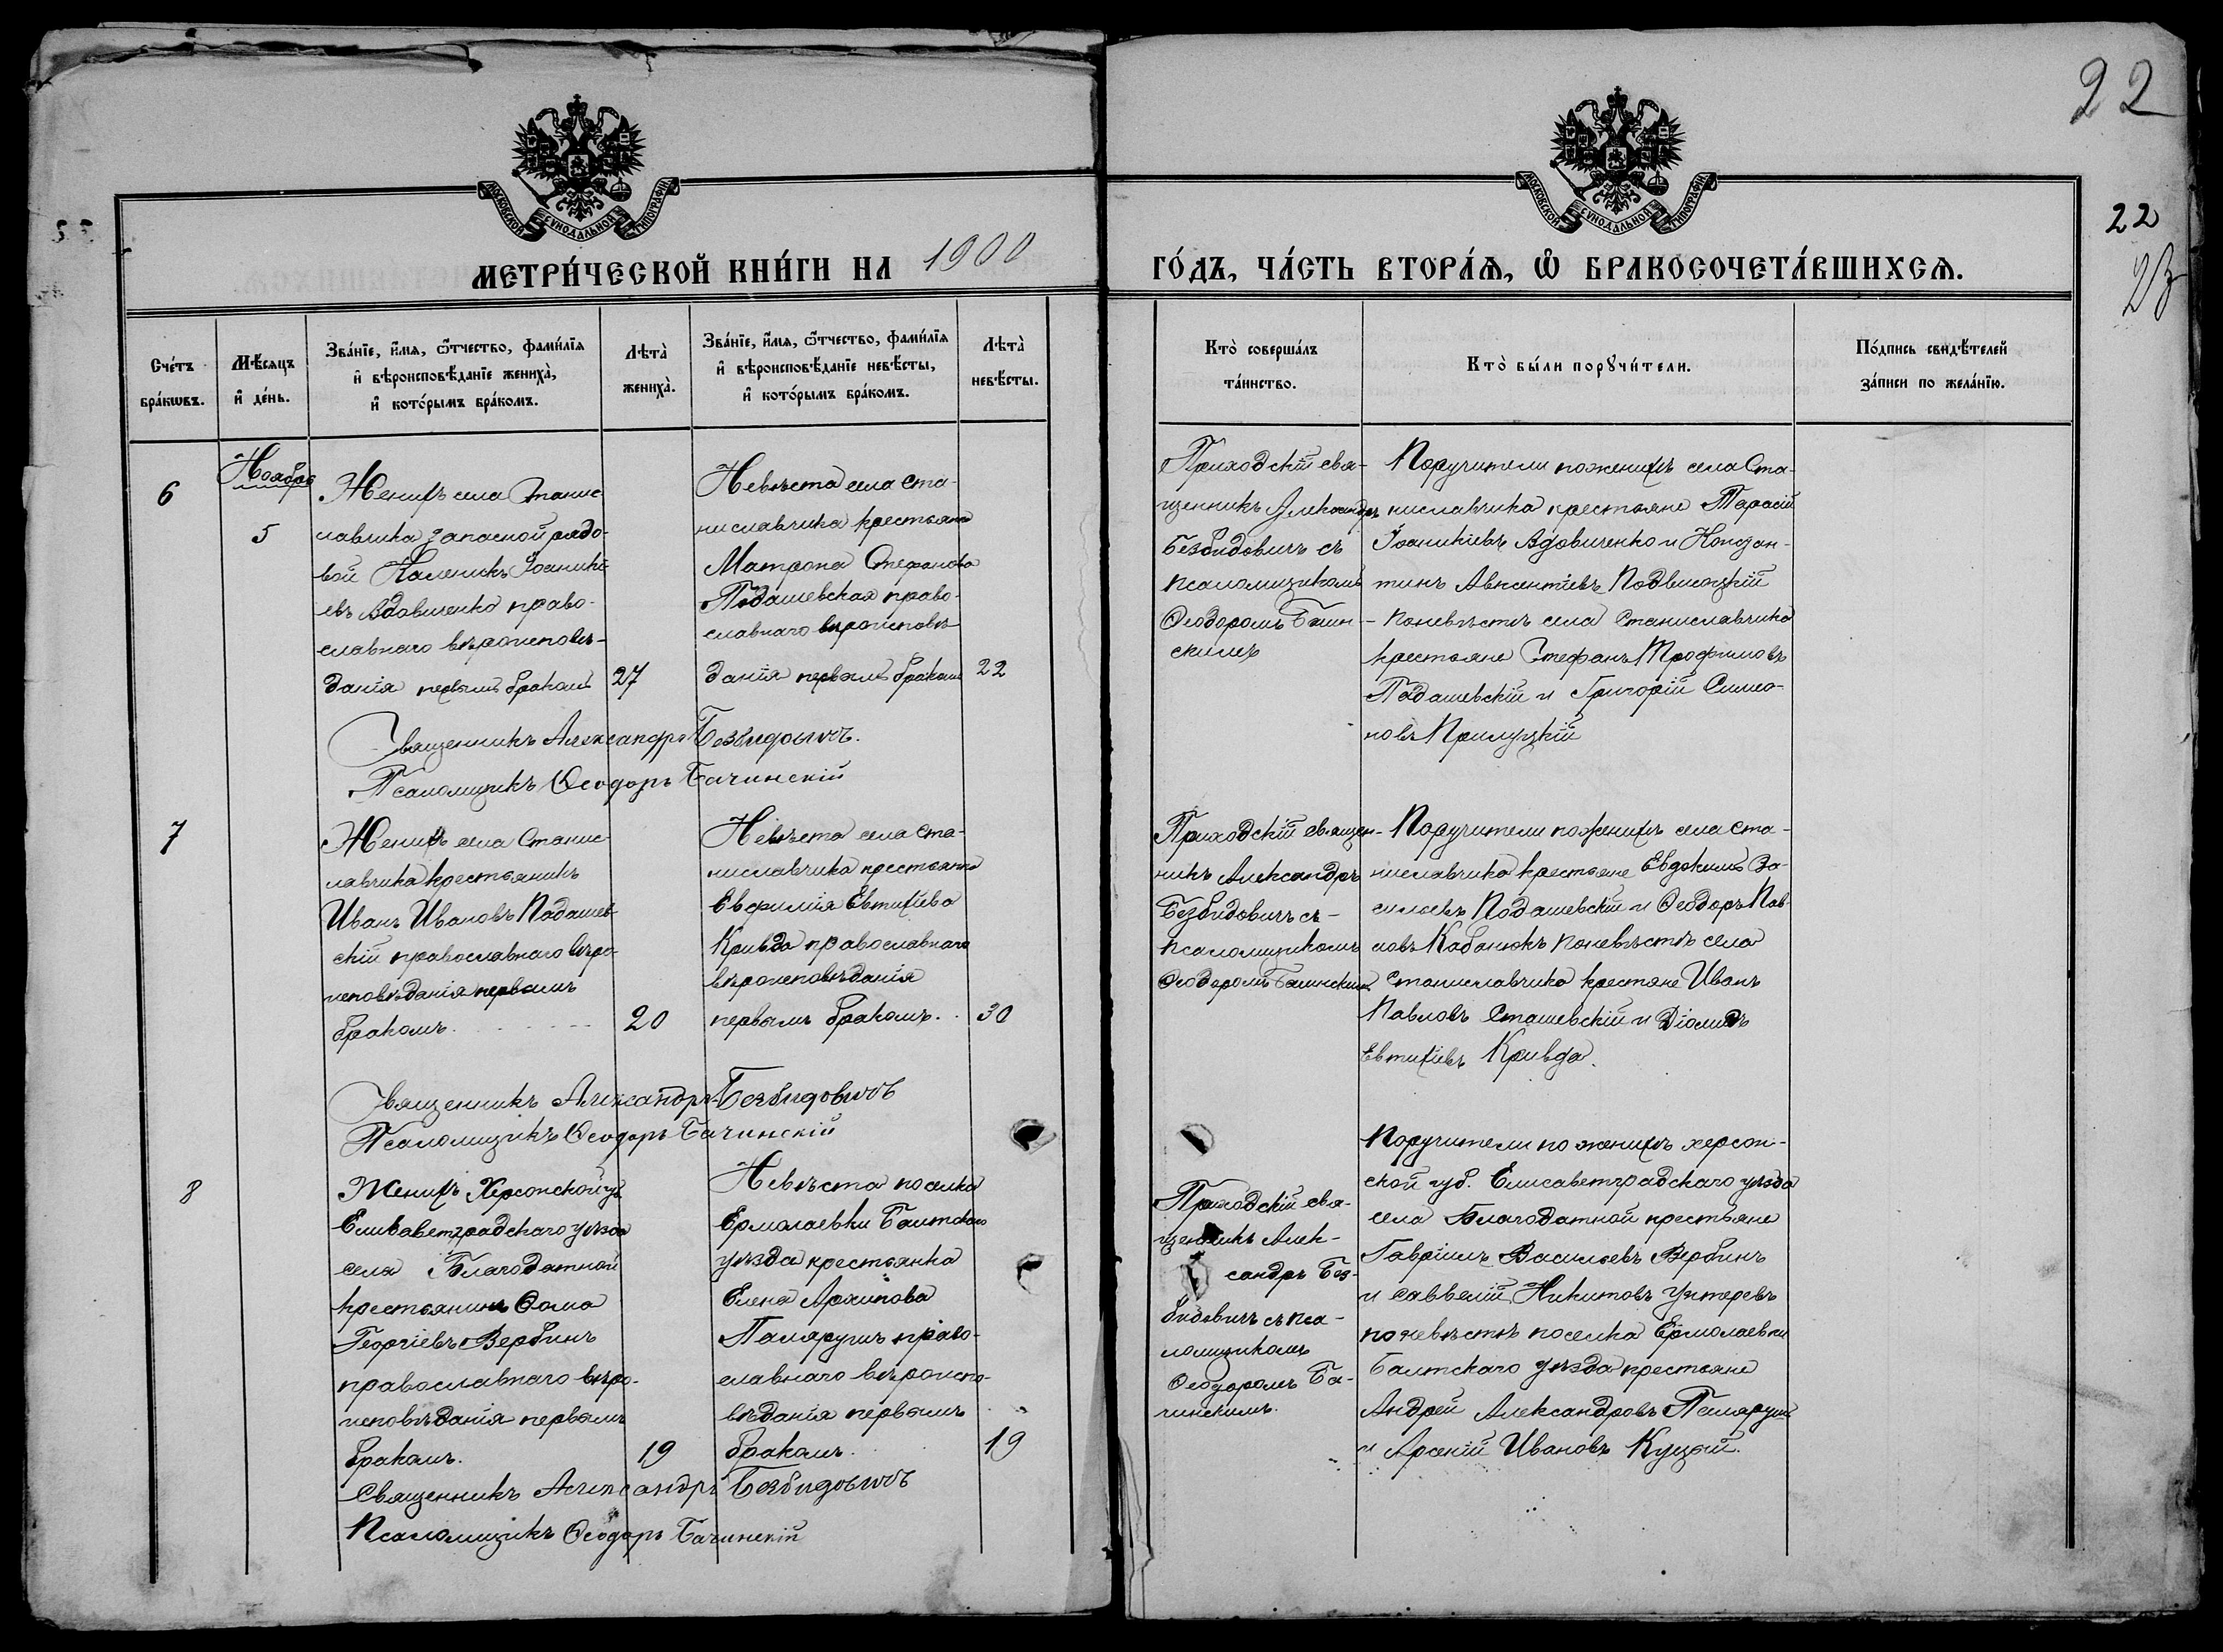 22
22
23
МОСКОВСКОЙ СУНОДАЛЬНОЙ ТИПОГРАФІИ
МОСКОВСКОЙ СУНОДАЛЬНОЙ ТИПОГРАФІИ
МЕТРИ́ЧЕСКОЙ КНИ́ГИ НА 1900
ГО́ДЪ, ЧА́СТЬ ВТОРА́Ѧ, Ѽ БРАКОСОЧЕТА́ВШИХСѦ.
Счéтъ
брáкωвъ.
Мѣ́сяцъ
и҆ дéнь.
Звáнїе, и҆́мѧ, ѻ҆́тчество, фамúлїѧ
и҆ вѣроисповѣ́данїе женихà,
и҆ котóрымъ брáкомъ.
Лѣтà
женихà.
Звáнїе, и҆́мѧ, ѻ҆́тчество, фамúлїѧ
и҆ вѣроисповѣ́данїе невѣ́сты,
и҆ котóрымъ брáкомъ.
Лѣтà
невѣ́сты.
Ктò совершáлъ
тáинство.
Ктò бы́ли порꙋчи́тели.
Пóдпись свидѣ́телей
зáписи по желáнїю.
6
Ноября
5
Женихъ села Станис-
лавчика запасной рядо-
вой Каленикъ Іоаникі-
евъ Вдовиченко право-
славнаго вѣроисповѣ-
данія первымъ бракомъ
27
Невѣста села Ста-
ниславчика крестьянка
Матрона Стефанова
Подашевская право-
славнаго вѣроисповѣ-
данія первымъ бракомъ
22
Приходскій свя-
щенникъ Александръ
Безбидовичъ съ
псаломщикомъ
Ѳеодоромъ Бачин-
скимъ
Поручители по женихѣ села Ста-
ниславчика крестьяне Тарасій
Іоаникіевъ Вдовиченко и Констан-
тинъ Авксентіевъ Подвысоцкій
По невѣстѣ села Станиславчика
крестьяне Стефанъ Трофимовъ
Подашевскій и Григорій Симео-
новъ Прилуцкій
Священникъ Александръ Безбидовичъ.
Псаломщикъ Ѳеодоръ Бачинскій
7
Женихъ села Станис-
лавчика крестьянинъ
Иванъ Ивановъ Подашев-
скій православнаго вѣро-
исповѣданія первымъ
бракомъ.
20
Невѣста села Ста-
ниславчика крестьянка
Евфимія Евтихіева
Кривда православнаго
вѣроисповѣданія
первымъ бракомъ.
30
Приходскій священ-
никъ Александръ
Безбидовичъ съ
псаломщикомъ
Ѳеодоромъ Бачинскимъ
Поручители по женихѣ села Ста-
ниславчика крестьяне Евдокимъ Ва-
сильевъ Подашевскій и Ѳеодоръ Пав-
ловъ Кабанюкъ по невѣстѣ села
Станиславчика крестяне Иванъ
Павловъ Сташевскій и Діомидъ
Евтихіевъ Кривда.
Священникъ Александръ Безбидовичъ
Псаломщикъ Ѳеодоръ Бачинскій
8
Женихъ Херсонской губ.
Елисаветградскаго уѣзда
села Благодатной
крестьянинъ Ѳома
Георгіевъ Вербинъ
православнаго вѣро-
исповѣданія первымъ
бракомъ.
19
Невѣста поселка
Ермолаевки Балтскаго
уѣзда крестьянка
Елена Архипова
Паляруш право-
славнаго вѣроиспо-
вѣданія первымъ
бракомъ.
19
Приходскій свя-
щенникъ Алек-
сандръ Без-
бидовичъ съ пса-
ломщикомъ
Ѳеодоромъ Ба-
чинскимъ.
Поручители по женихѣ херсон-
ской губ. Елисаветградскаго уѣзда
села Благодатной крестьяне
Гавріилъ Васильевъ Вербинъ
и Савелій Никитовъ
по невѣстѣ поселка Ермолаевки
Балтскаго уѣзда крестьяне
Андрей Александровъ Паляруш
и Арсеній Ивановъ Куцый.
Священникъ Александръ Безбидовичъ
Псаломщикъ Ѳеодоръ Бачинскій